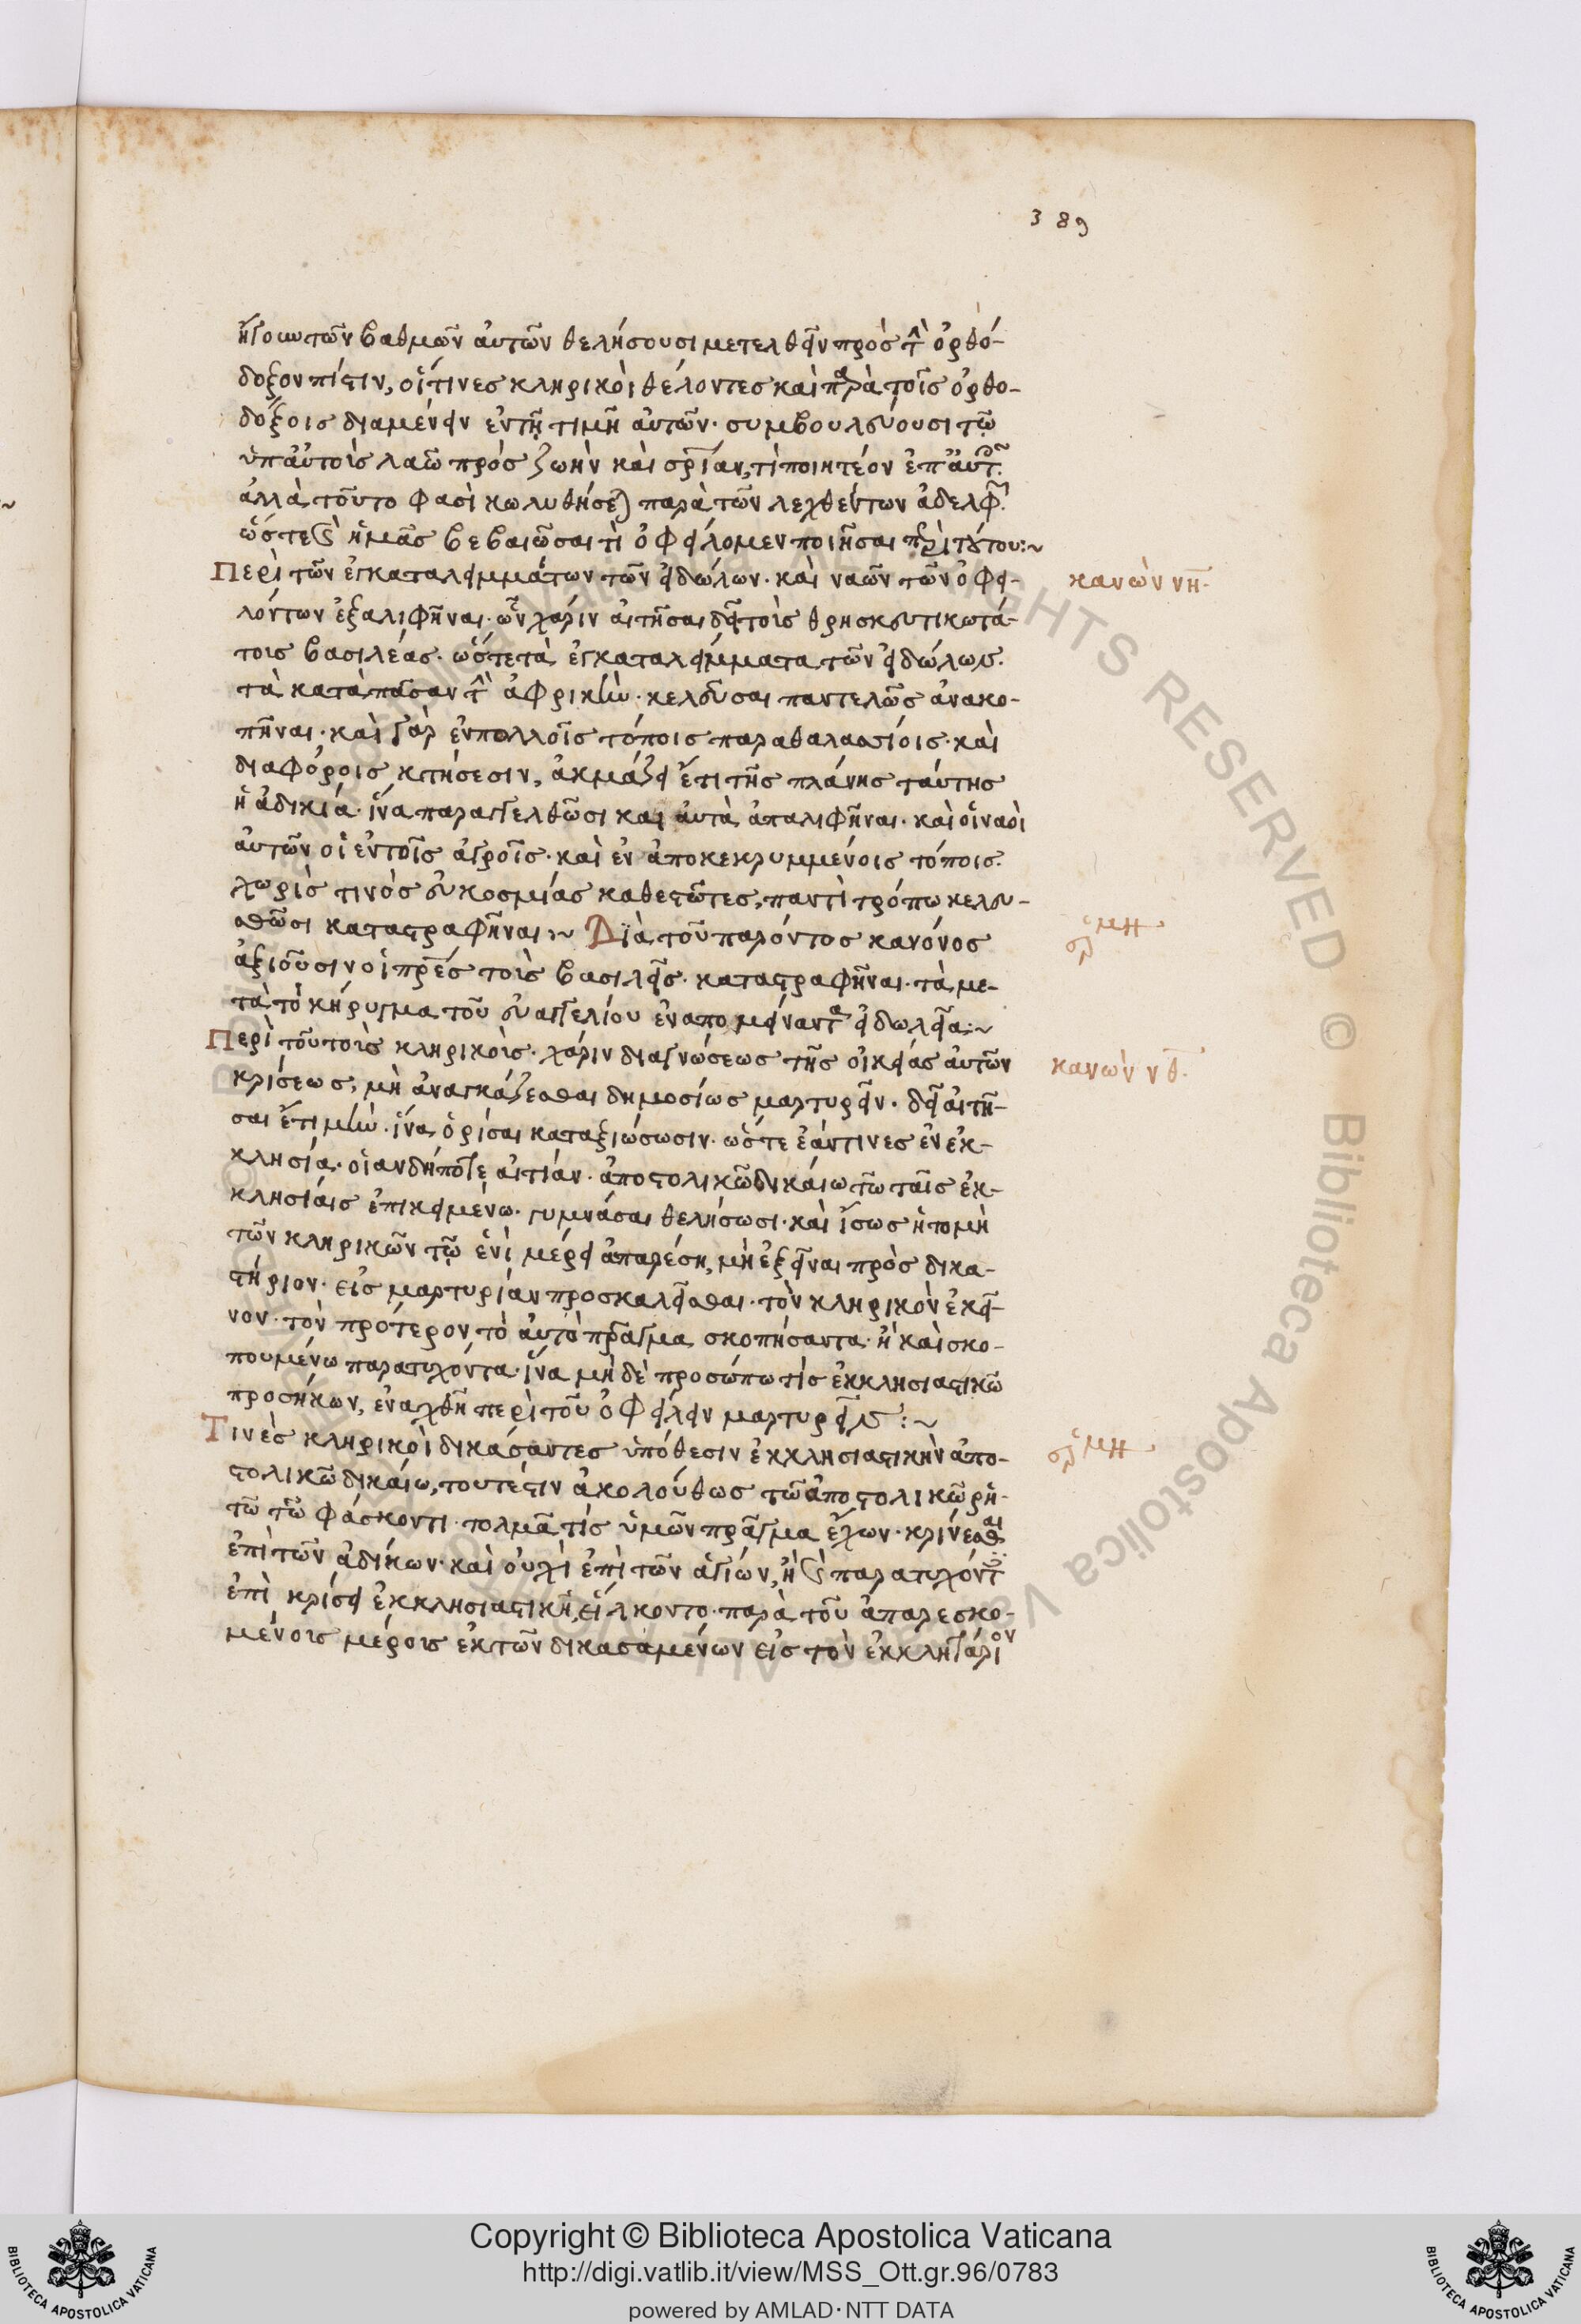 389
ἤγουν τῶν βαθμῶν αὐτῶν θελήσουσι μετελθεῖν πρὸς τὴν ὀρθό-
δοξον πίστιν, οἵτινες κληρικοὶ θέλοντες καὶ παρὰ τοῖς ὀρθο-
δόξοις διαμένειν ἐν τῇ τιμῇ αὐτῶν· συμβουλεύουσι τῷ
ὑπ αὐτοὺς λαῷ πρὸς ζωὴν καὶ σρίαν, τί ποιητέον ἐπ αὐτοῖς.
ἀλλὰ τοῦτο φασὶ κωλυθήσεται παρὰ τῶν λεχθέντων ἀδελφῶν.
ὥστε καὶ ἡμᾶς βεβαιῶσαι τί ὀφείλομεν ποιῆσαι περὶ τούτου:~
Περὶ τῶν ἐγκαταλειμμάτων τῶν εἰδώλων· καὶ ναῶν τῶν ὀφει-
κανὼν νη·
λόντων ἐξαλιφῆναι· ὧν χάριν αἰτῆσαι δεῖ τοὺς θρησκευτικωτά-
τους βασιλέας· ὥστε τὰ ἐγκαταλείμματα τῶν εἰδώλων.
τὰ κατὰ πᾶσαν τὴν ἀφρικὴν· κελεῦσαι παντελῶς ἀνακο-
πῆναι· καὶ γὰρ ἐν πολλοῖς τόποις παραθαλασσίοις· καὶ
διαφόροις κτήσεσιν, ἀκμάζει ἔτι τῆς πλάνης ταύτης
ἡ ἀδικία· ἵνα παραγγελθῶσι καὶ αὐτὰ ἀπαλιφῆναι· καὶ οἱ ναοὶ
αὐτῶν οἱ ἐν τοῖς ἀγροῖς· καὶ ἐν ἀποκεκρυμμένοις τόποις.
χωρίς τινος εὐκοσμίας καθεστῶτες, παντὶ τρόπω κελευ-
σθῶσι καταστραφῆναι:~ Διὰ τοῦ παρόντος κανόνος
σχ μη
ἀξιοῦσιν οἱ πρες τοὺς βασιλεῖς· καταστραφῆναι· τὰ με-
τὰ τὸ κήρυγμα τοῦ εὐαγγελίου ἐναπομείναντα εἰδωλεῖα:~
Περὶ τοῦ τοὺς κληρικοὺς· χάριν διαγνώσεως τῆς οἰκείας αὐτῶν
κανὼν νθ·
κρίσεως, μὴ ἀναγκάζεσθαι δημοσίως μαρτυρεῖν· δεῖ αἰτῆ-
σαι ἔτι μὴν· ἵνα ὁρίσαι καταξιώσωσιν· ὥστε ἐάν τινες ἐν ἐκ-
κλησία· οἱανδήποτε αἰτίαν· ἀποστολικῶ δικαίω τῶ ταῖς ἐκ-
κλησίαις ἐπικειμένω· γυμνάσαι θελήσωσι· καὶ ἴσως ἡ τομὴ
τῶν κληρικῶν τῷ ἑνὶ μέρει ἀπαρέση, μὴ ἐξεῖναι πρὸς δικα-
στήριον· εἰς μαρτυρίαν προσκαλεῖσθαι· τὸν κληρικὸν ἐκεῖ-
νον· τὸν πρότερον τὸ αὐτὸ πρᾶγμα σκοπήσαντα· ἢ καὶ σκο-
πουμένω παρατυχόντα· ἵνα μὴ δὲ προσώπω τίς ἐκκλησιαστικῶ
προσήκων, ἐναχθῆ περὶ τοῦ ὀφείλειν μαρτυρεῖν:~
Τινὲς κληρικοὶ δικάσαντες ὑπόθεσιν ἐκκλησιαστικὴν ἀπο-
σχ μη
στολικῶ δικαίω, τουτέστιν ἀκολούθως τῶ ἀποστολικῶ ρη-
τῶ τῶ φάσκοντι· τολμᾶ τὶς ὑμῶν πρᾶγμα ἔχων· κρίνεσθαι
ἐπὶ τῶν ἀδίκων· καὶ οὐχὶ ἐπὶ τῶν ἁγίων, ἢ καὶ παρατυχόντες
ἐπὶ κρίσει ἐκκλησιαστικῆ, εἵλκοντο· παρὰ τοῦ ἀπαρεσκο-
μένους μέρους ἐκ τῶν δικασαμένων εἰς τὸν ἐκκλητάριον
Copyright © Biblioteca Apostolica Vaticana
http://digi.vatlib.it/view/MSS_Ott.gr.96/0783
powered by AMLAD·NTT DATA